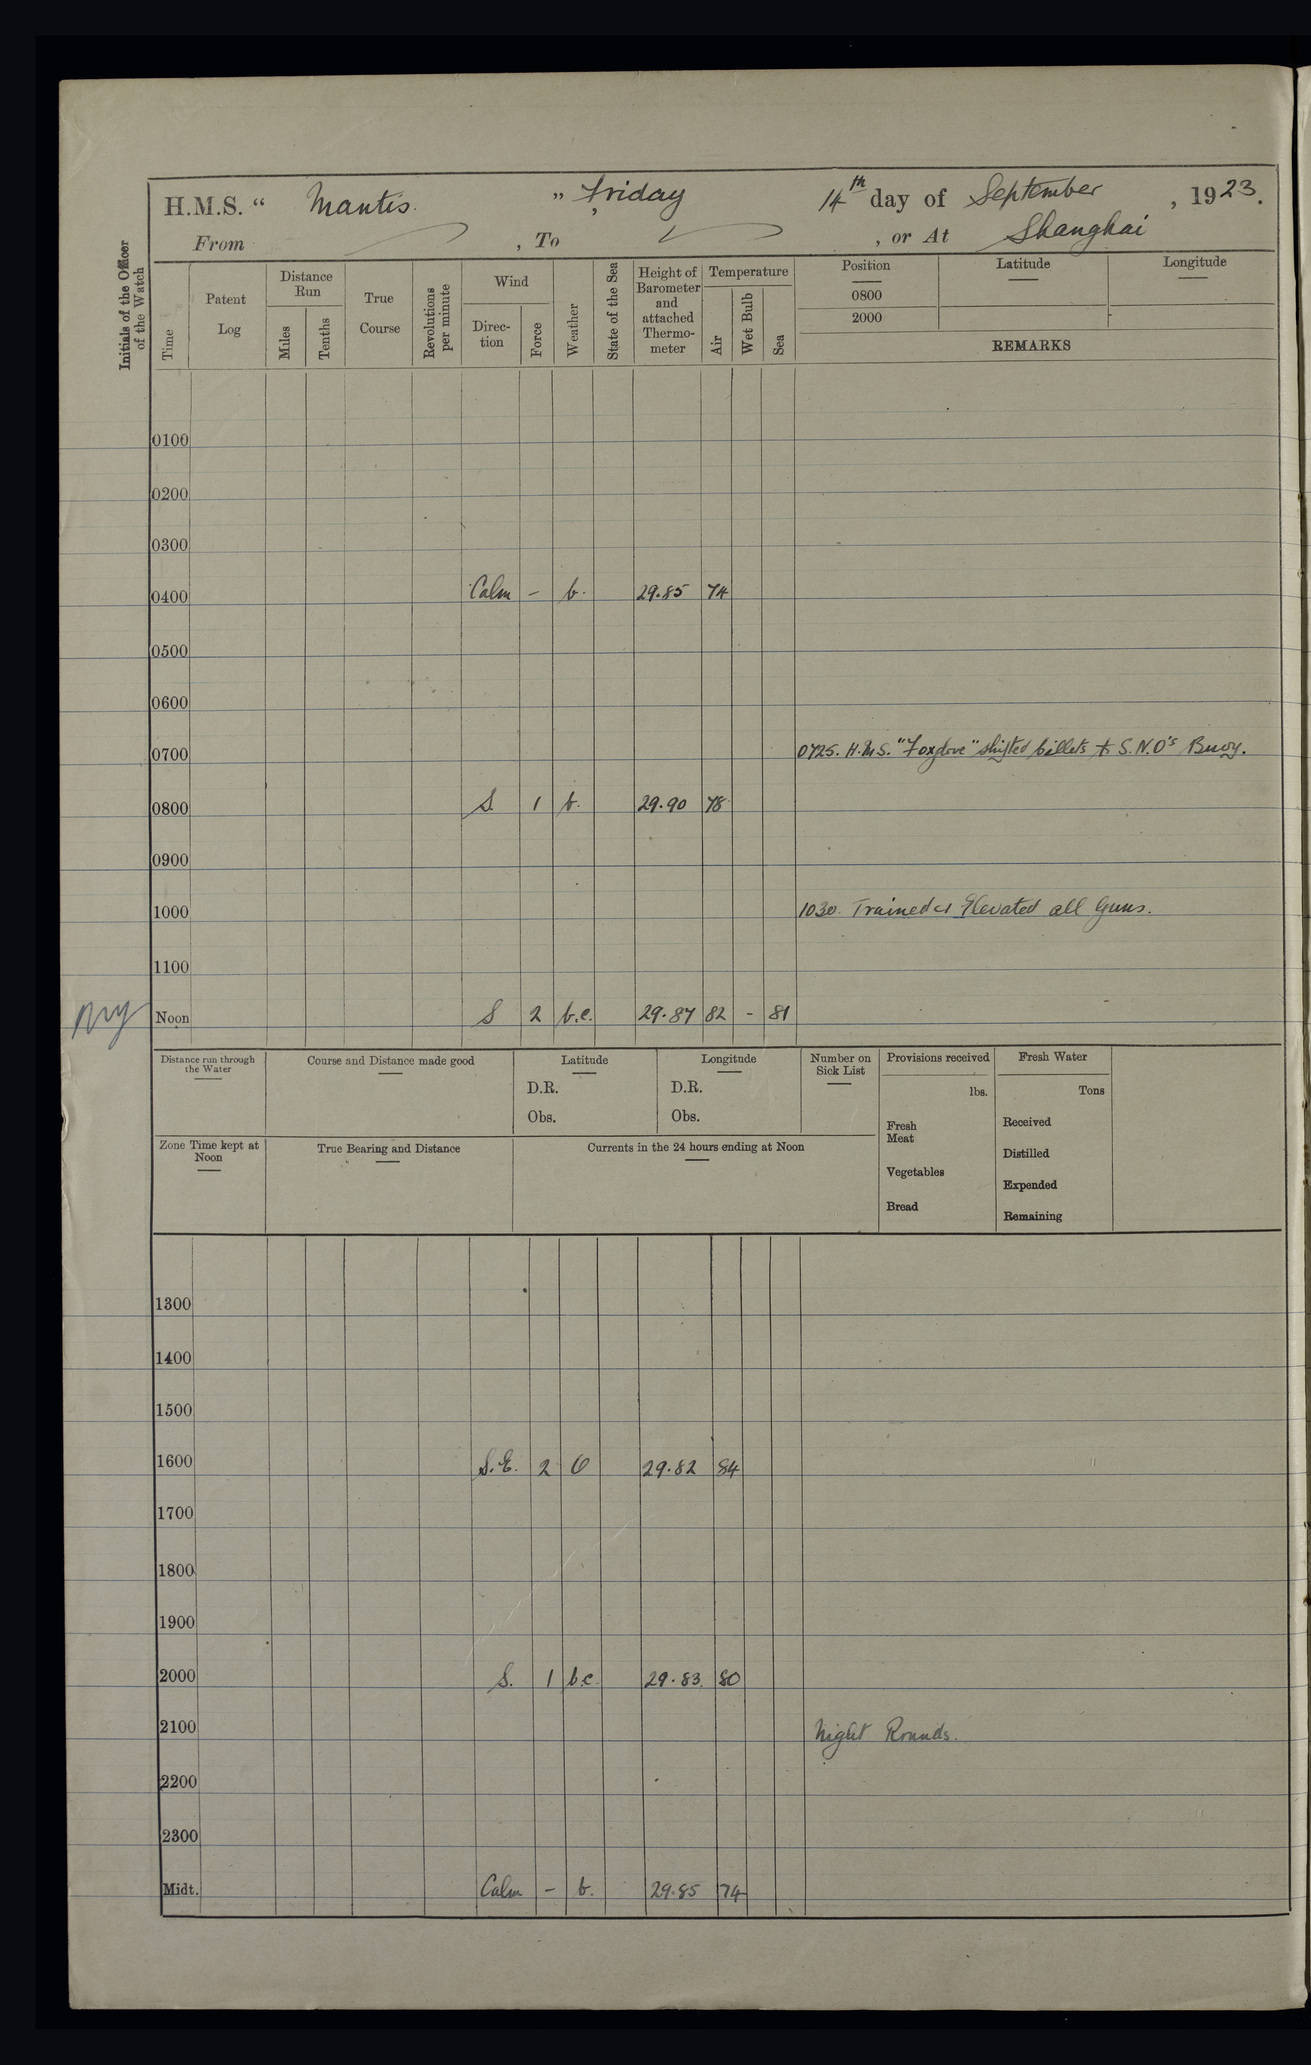 H.M.S. “ Mantis. ” Friday 14th day of September , 1923.
From , To , or At Shanghai
Initials of the Officer of the Watch
Time
Patent Log
Distance Run
Miles
Tenths
True Course
Revolutions per minute
Wind
Direc-tion
Force
Weather
State of the Sea
Height of Barometer and attached Thermo-meter
Temperature
Air
Wet Bulb
Sea
Position
Latitude
Longitude
0800
2000
REMARKS
0100
0200
0300
0400 Calm - b. 29.85 74
0500
0600
0700 0725. H.M.S. "Foxglove" shifted billets to S.N.O's Buoy.
0800 S 1 b. 29.90 78
0900
1000 1030. Trained & Elevated all Guns.
1100
Noon S 2 b.c. 29.87 82 - 81
Distance run through the Water
Course and Distance made good
Latitude
D.R.
Obs.
Longitude
D.R.
Obs.
Number on Sick List
Provisions received
lbs.
Fresh Meat
Vegetables
Bread
Fresh Water
Tons
Received
Distilled
Expended
Remaining
Zone Time kept at Noon
True Bearing and Distance
Currents in the 24 hours ending at Noon
1300
1400
1500
1600 S.E. 2 O 29.82 84
1700
1800
1900
2000 S. 1 bc 29.83. 80
2100 Night Rounds.
2200
2300
Midt. Calm - b. 29.85 74